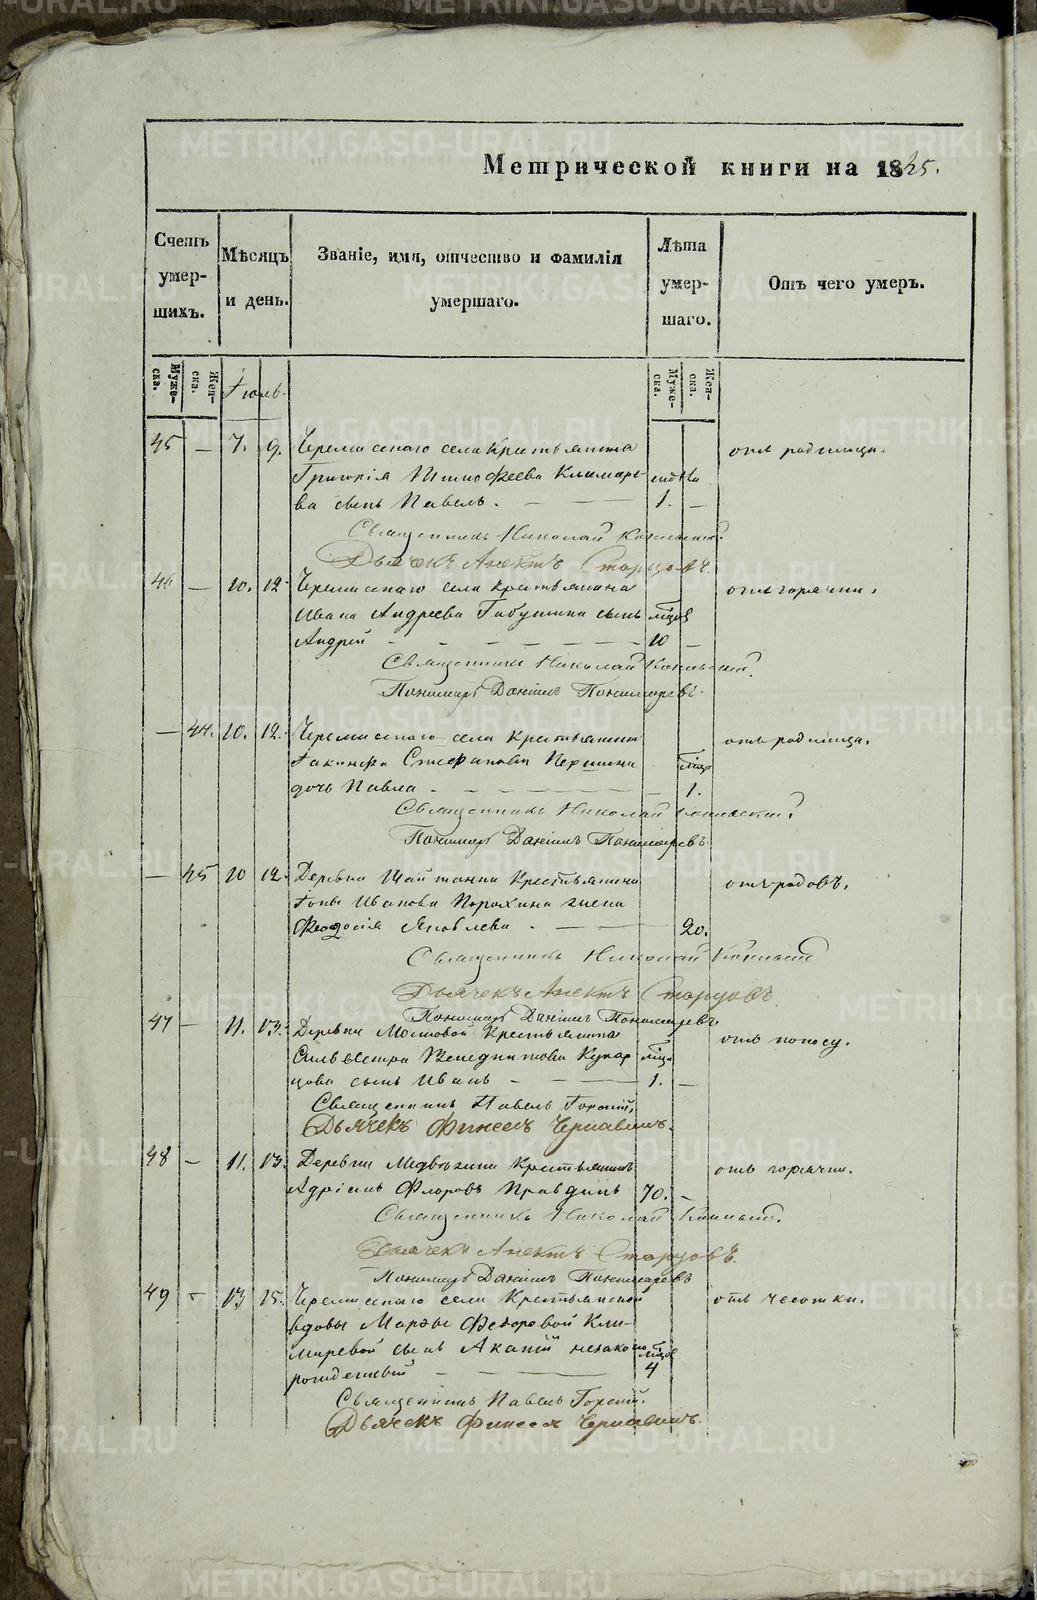 Метрической книги на 1845.
Счетъ умер-шихъ.
Мѣсяцъ и день.
Званіе, имя, отчество и фамилія умершаго.
Лѣта умер-шаго.
Отъ чего умеръ.
Муже-ска. Жен-ска.
Іюль.
Муже-ска. Жен-ска.
45 — 7. 9. Черемисскаго села Крестьянина отъ родимца.
Григорія Тимофеева Климаре-
ва сынъ Павелъ. — 1. —
Священникъ Николай
Дьячекъ Старцовъ.
46 — 10. 12 Черемисскаго села крестьянина отъ горячки.
Ивана Андреева Табушкина сынъ мѣсяцов
Андрей — 10 —
Священникъ Николай
Пономарь Даніилъ Пономаревъ.
— 44. 10. 12. Черемисскаго села Крестьянина отъ родимца.
Іакинфа Стефанова Першина
дочь Павла — 1.
Священникъ Николай
Пономарь Даніилъ Пономаревъ.
— 45 10 12. Деревни Шайтанки Крестьянина отъ родовъ.
Іоны Иванова Порохина жена
Феодосія Яковлева — 20.
Священникъ Николай
Дьячекъ Старцовъ
Пономарь Даніилъ Пономаревъ.
47 — 11. 13. Деревни Крестьянина отъ поносу.
Сильвестра Венедиктова Кукар
цова сынъ Иванъ — 1. —
Священникъ Павелъ Горный.
Дьячекъ Финеесъ Чернавинъ.
48 — 11. 13. Деревни Крестьянинъ отъ горячки.
Адріанъ Флоровъ Правдинъ 70. —
Священникъ Николай
Дьячекъ Старцовъ.
Пономарь Даніилъ Пономаревъ
49 — 13 15. Черемисскаго села Крестьянской отъ чесотки.
вдовы Марѳы Федоровой Кли-
маревой сынъ незаконо
рожденный — 4
Священникъ Павелъ Горный.
Дьячекъ Финеесъ Чернавинъ.
METRIKI.GASO-URAL.RU